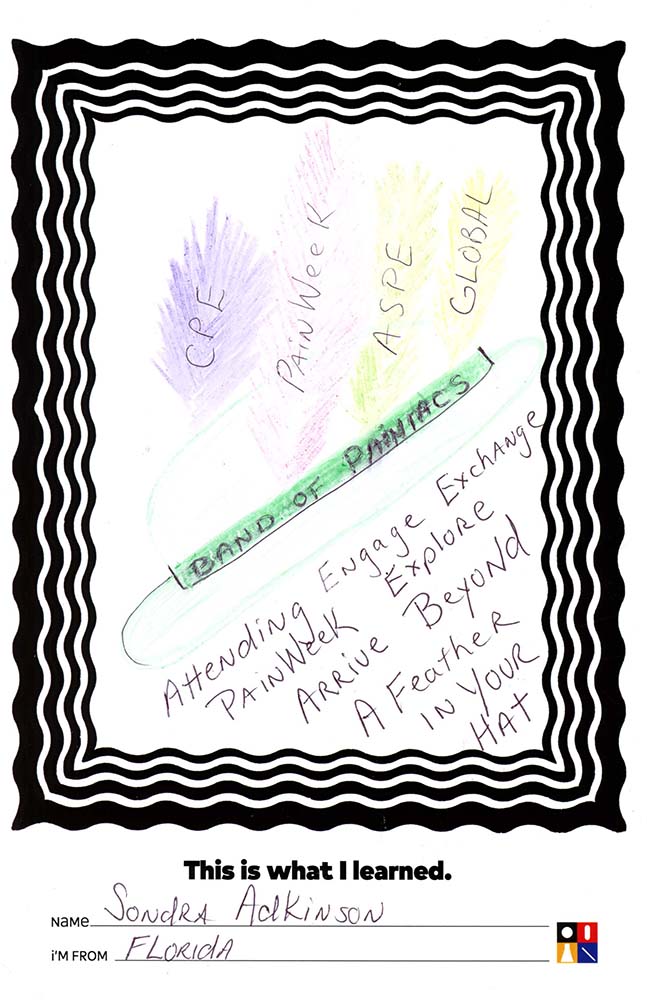 CPE
PAiNWeeK
ASPE
GLOBAL
BAND OF PAiNiACS
AttENDiNg Engage ExchANge
PAiNWeeK Explore
ARRiVe BeyoNd
A FeatheR
iN YOUR
HAt
This is what I learned.
Name SoNdRA AdKiNSoN
i'M FROM FLORidA